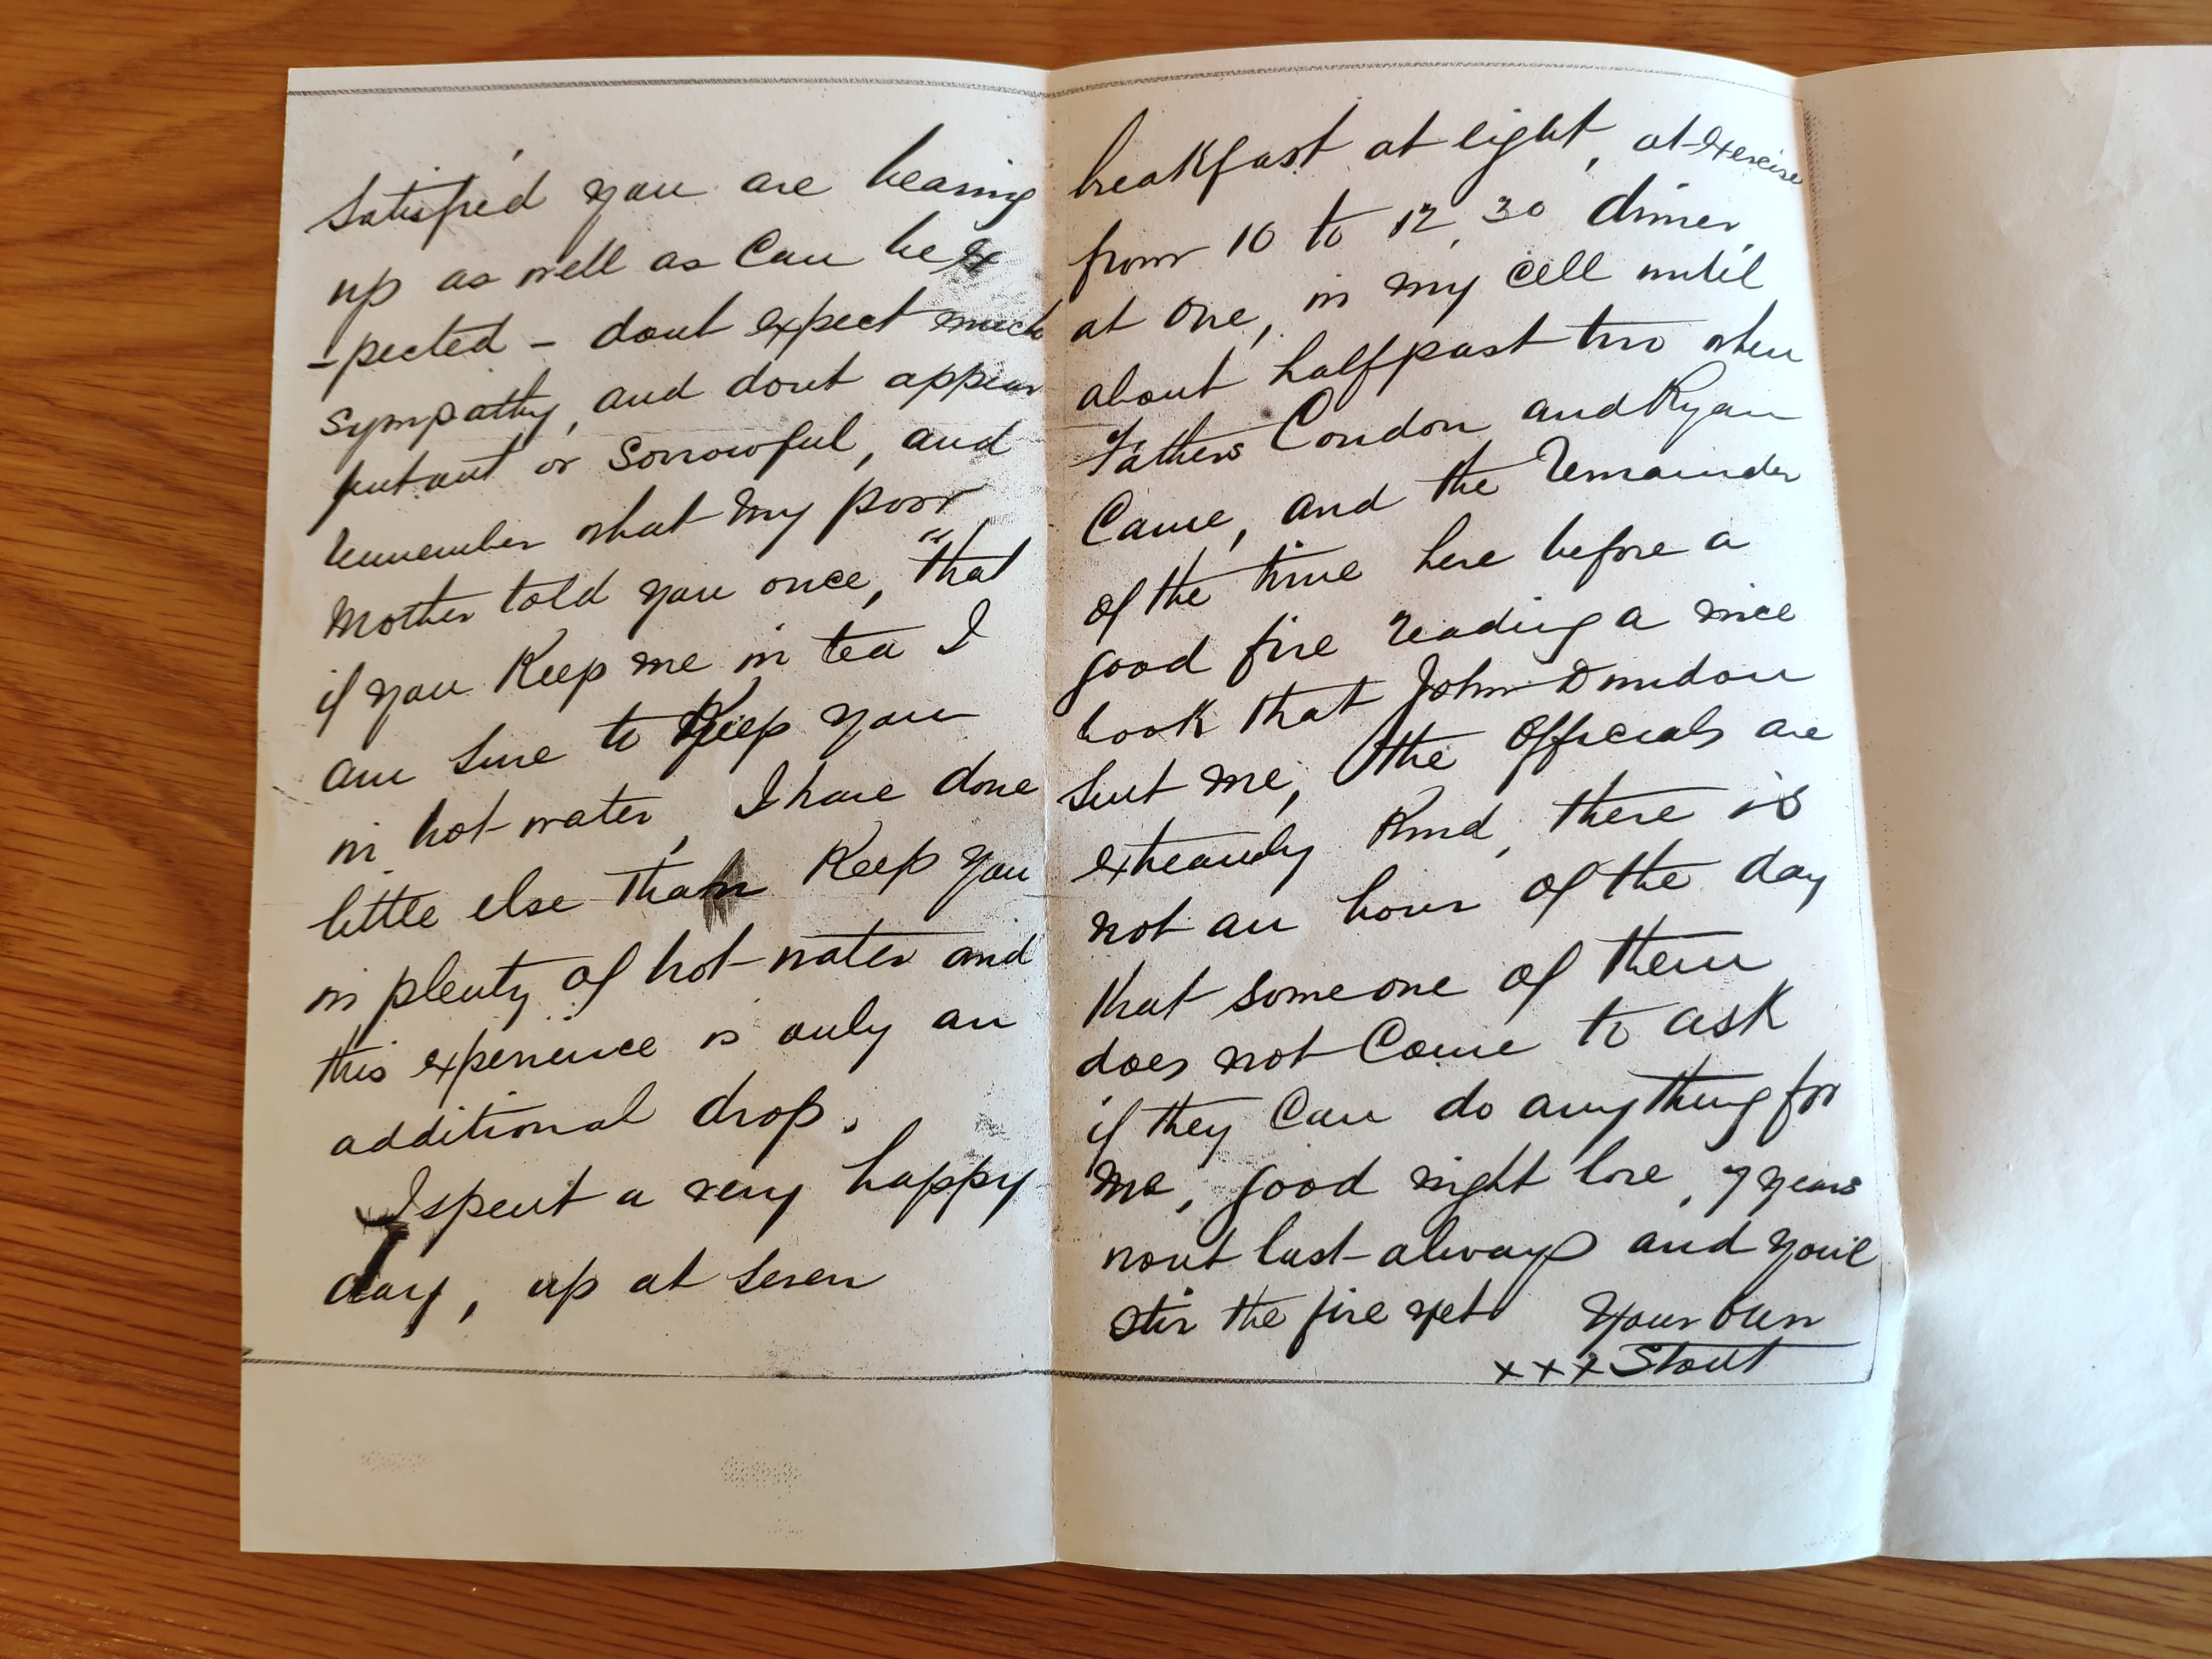 satisfied you are bearing
up as well as can be ex
-pected - dont expect much
sympathy, and dont appear
or sorrowful, and
remember what my poor
Mother told you once, "that
if you Keep me in tea I
am sure to Keep you
in hot water, I have done
little else than Keep you
in plenty of hot water and
this experience is only an
additional drop.
I spent a very happy
day, up at seven
breakfast at eight, at exercise
from 10 to 12,30 dinner
at one, in my cell until
about half past two when
Fathers Condon and Ryan
Came, and the remainder
of the time here before a
good fire reading a nice
book that John Dundon
sent me, the officials are
Kind, there is
not an hour of the day
that someone of them
does not Come to ask
if they Can do anything for
me, good night love, 7 years
wont last always and you'l
stir the fire yet Your own
xxx Stout